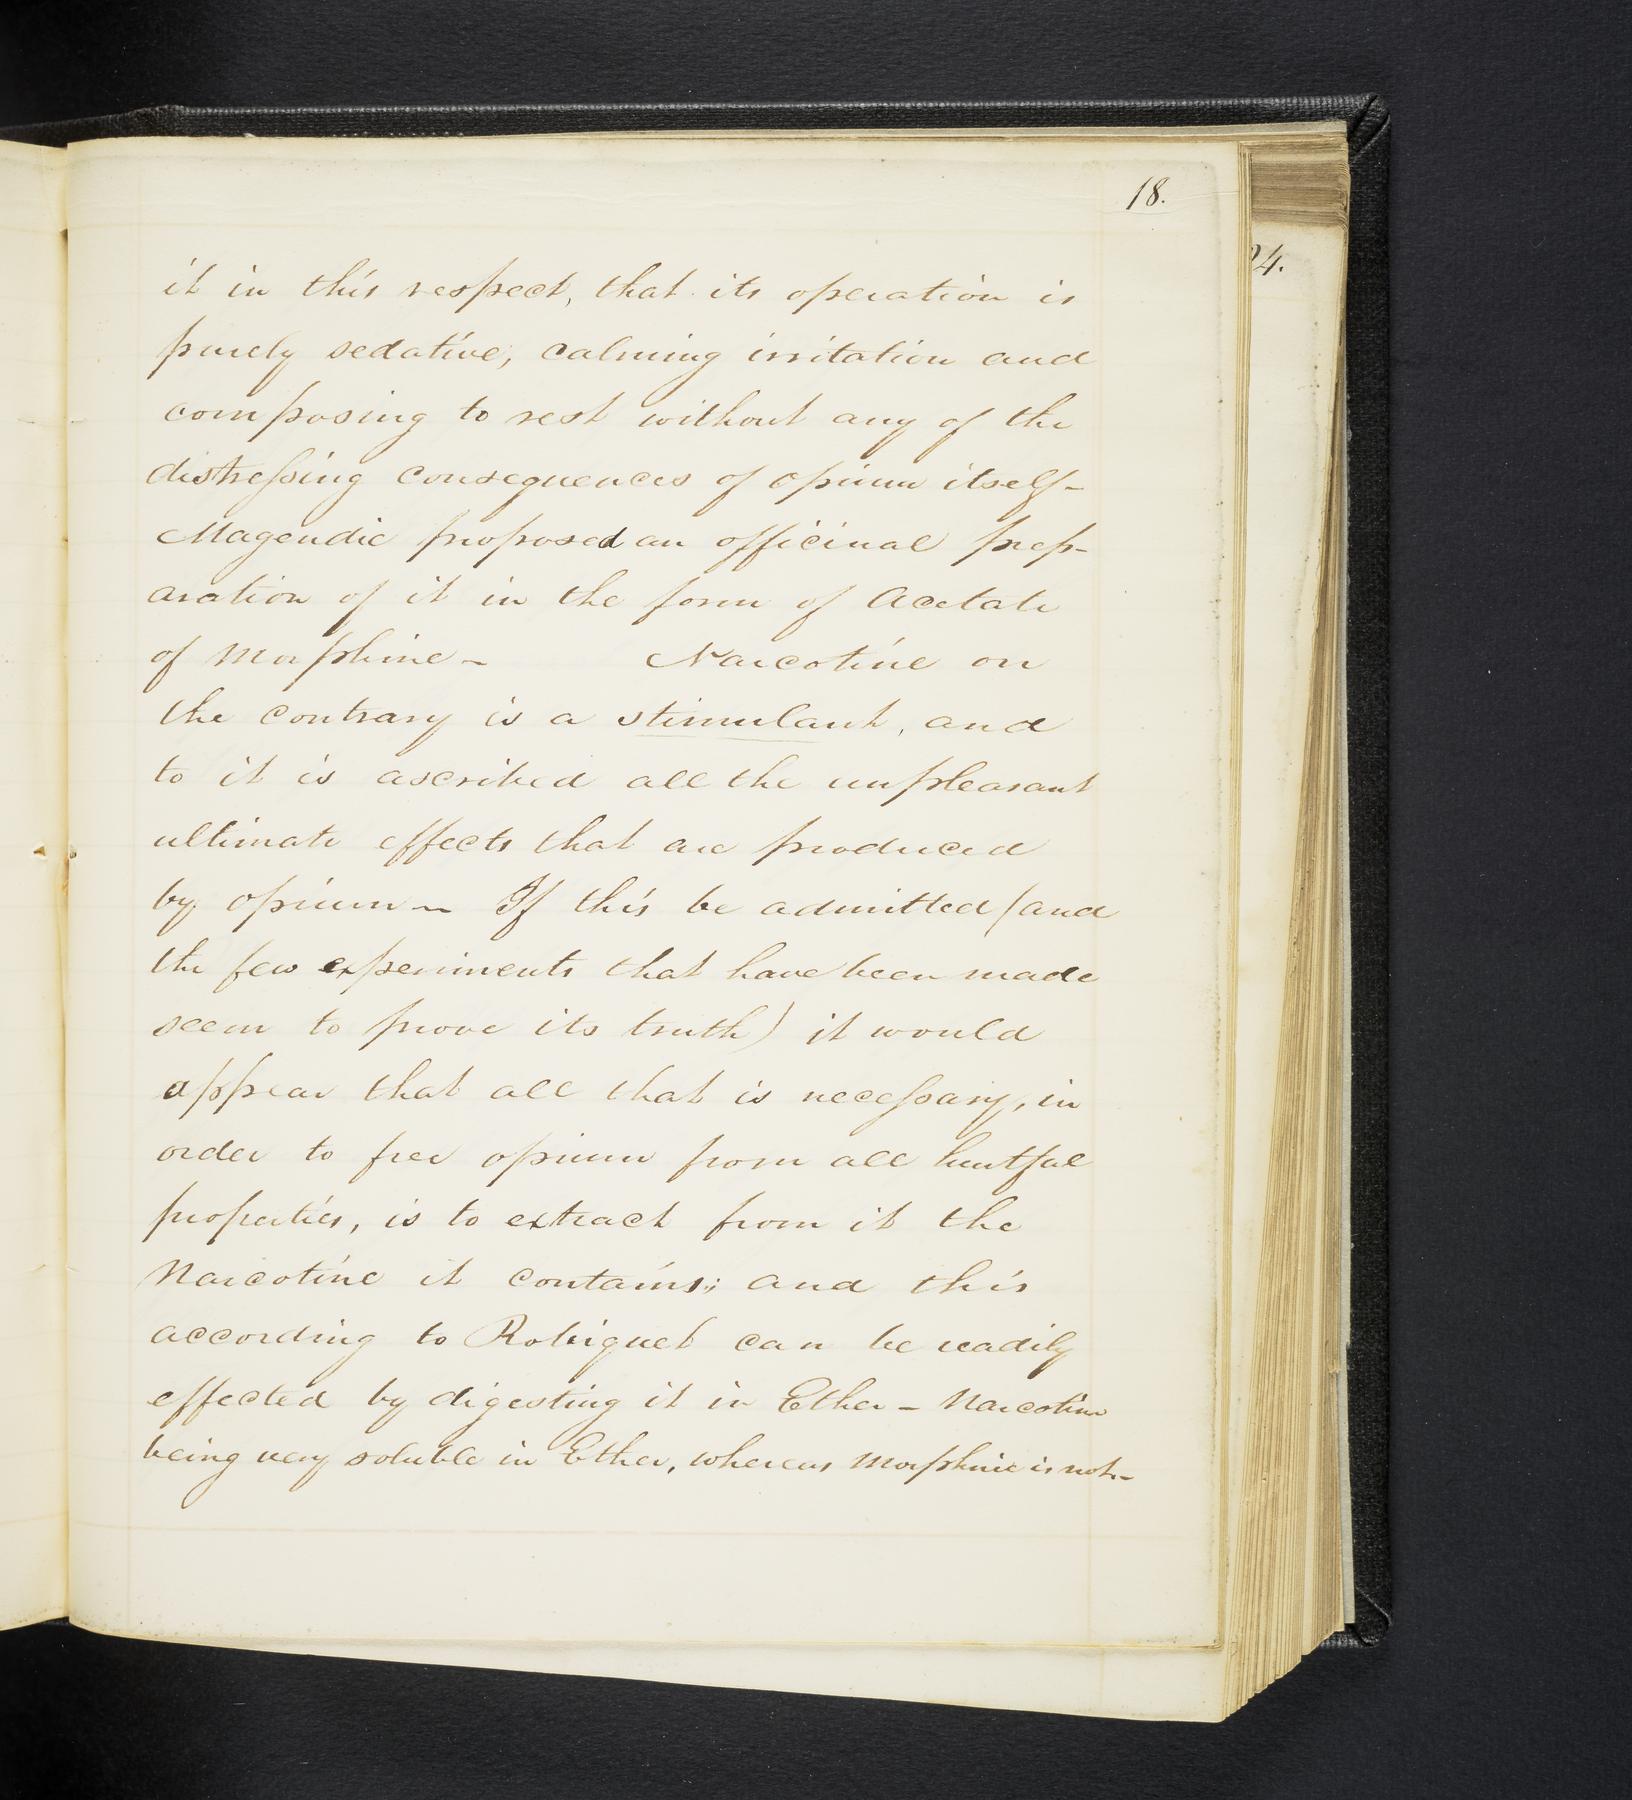 18.
24.
it in this respect, that its operation is
purely sedative, calming irritation and
composing to rest without any of the
distressing consequences of opium itself-
Magendie proposed an officinal prep-
aration of it in the form of Acetate
of Morphine - Narcotine on
the contrary is a stimulant, and
to it is ascribed all the unpleasant
ultimate effects that are produced
by opium - If this be admitted (and
the few experiments that have been made
seem to prove its truth) it would
appear that all that is necessary, in
order to free opium from all hurtful
properties, is to extract from it the
Narcotine it contains; and this
according to Robiquet can be readily
effected by digesting it in Ether - Narcotine
being very soluble in Ether, whereas Morphine is not-